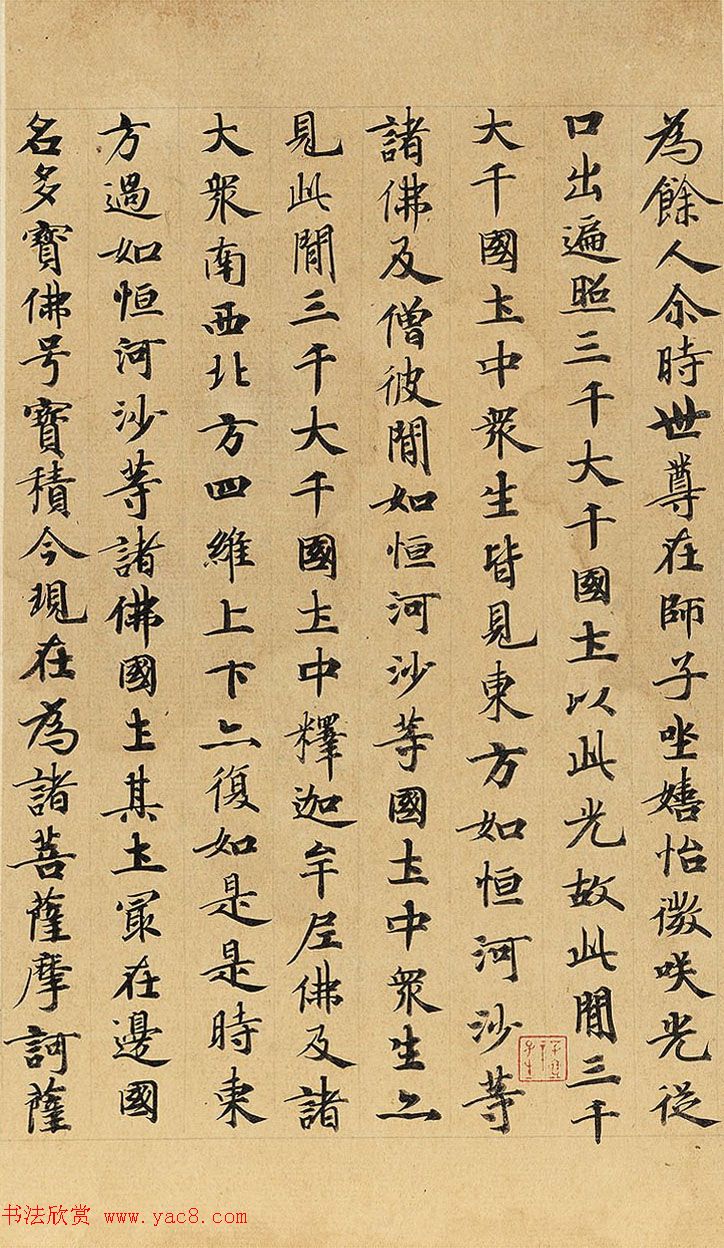 為餘人尒時世尊在師子坐嬉怡微咲光從
口出遍照三千大千國土以此光故此閒三千
大千國土中眾生皆見東方如恒河沙等
諸佛及僧彼閒如恒河沙等國土中眾生亦
見此閒三千大千國土中釋迦牟尼佛及諸
大眾南西北方四維上下亦復如是是時東
方過如恒河沙等諸佛國土其土最在邊國
名多寶佛号寶積今現在為諸菩薩摩訶薩
书法欣赏 www.yac8.com